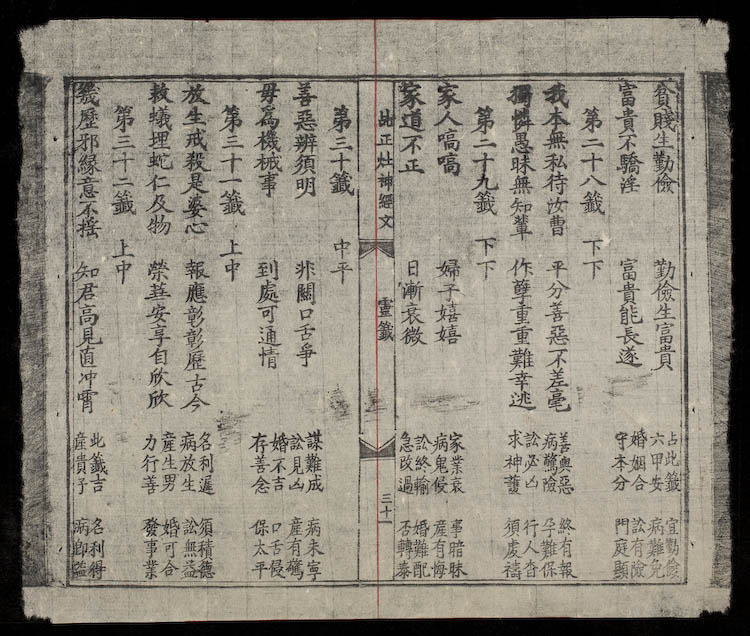 貧賤生勤儉 勤儉生富貴
富貴不驕淫 富貴能長遂
占此籤 宜勤儉
六甲安 病難免
婚姻合 訟有險
守本分 門庭顯
第二十八籤 下下
我本無私待汝曹 平分善惡不差毫
獨憐愚昧無知輩 作孽重重難幸逃
善與惡 終有報
病驚險 孕難保
訟必凶 行人杳
求神護 須處禱
第二十九籤 下下
家人嗃嗃 婦子嬉嬉
家道不正 日漸衰微
家業衰 事暗昧
病鬼侵 產有悔
訟終輸 婚難配
急改過 否轉泰
此正灶神經文 靈籤 三十一
第三十籤 中平
善惡辨須明 非關口舌爭
毋爲機械事 到處可通情
謀難成 病未寧
訟見凶 產有驚
婚不吉 口舌侵
存善念 保太平
第三十一籤 上中
放生戒殺是婆心 報應彰彰歷古今
救蟻埋蛇仁及物 榮華安享自欣欣
名利遲 須積德
病放生 訟無益
產生男 婚可合
力行善 發事業
第三十二籤 上中
幾歷邪緣意不搖 知君高見直冲霄
此籤吉 名利得
產貴子 病即